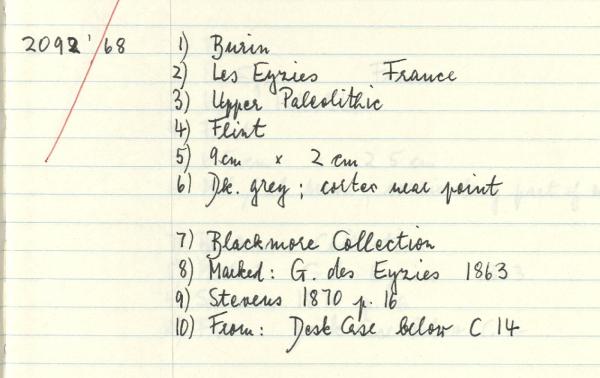 2092'68 1) Burin
2) Les Eyzies France
3) Upper Paleolithic
4) Flint
5) 9cm x 2 cm
6) Dk. grey ; cortex near point
7) Blackmore Collection
8) Marked: G. des Eyzies 1863
9) Stevens 1870 p. 16
10) From: Desk Case below C 14